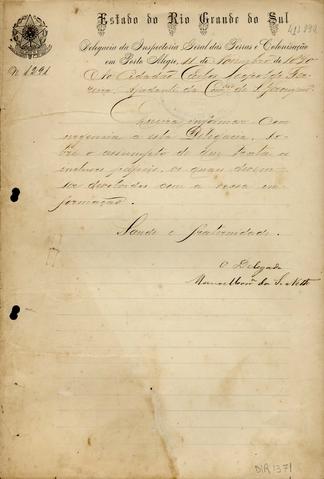 Estado do Rio Grande do Sul
Delegacia da Inspectoria Geral das Terras e Colonisação
em Porto Alegre, 11 de Novembro de 1890
Nº 1291
Ao Cidadão Carlos Leopoldo
Ajudante da
Queira informar com
urgencia a esta Delegacia, so-
bre o assumpto de que trata o
incluso papeis, os quaes devem
ser devolvidos com a vossa in-
formação.
Saude e fraternidade.
O Delegado
Manoel da S. Netto
DIR 1371